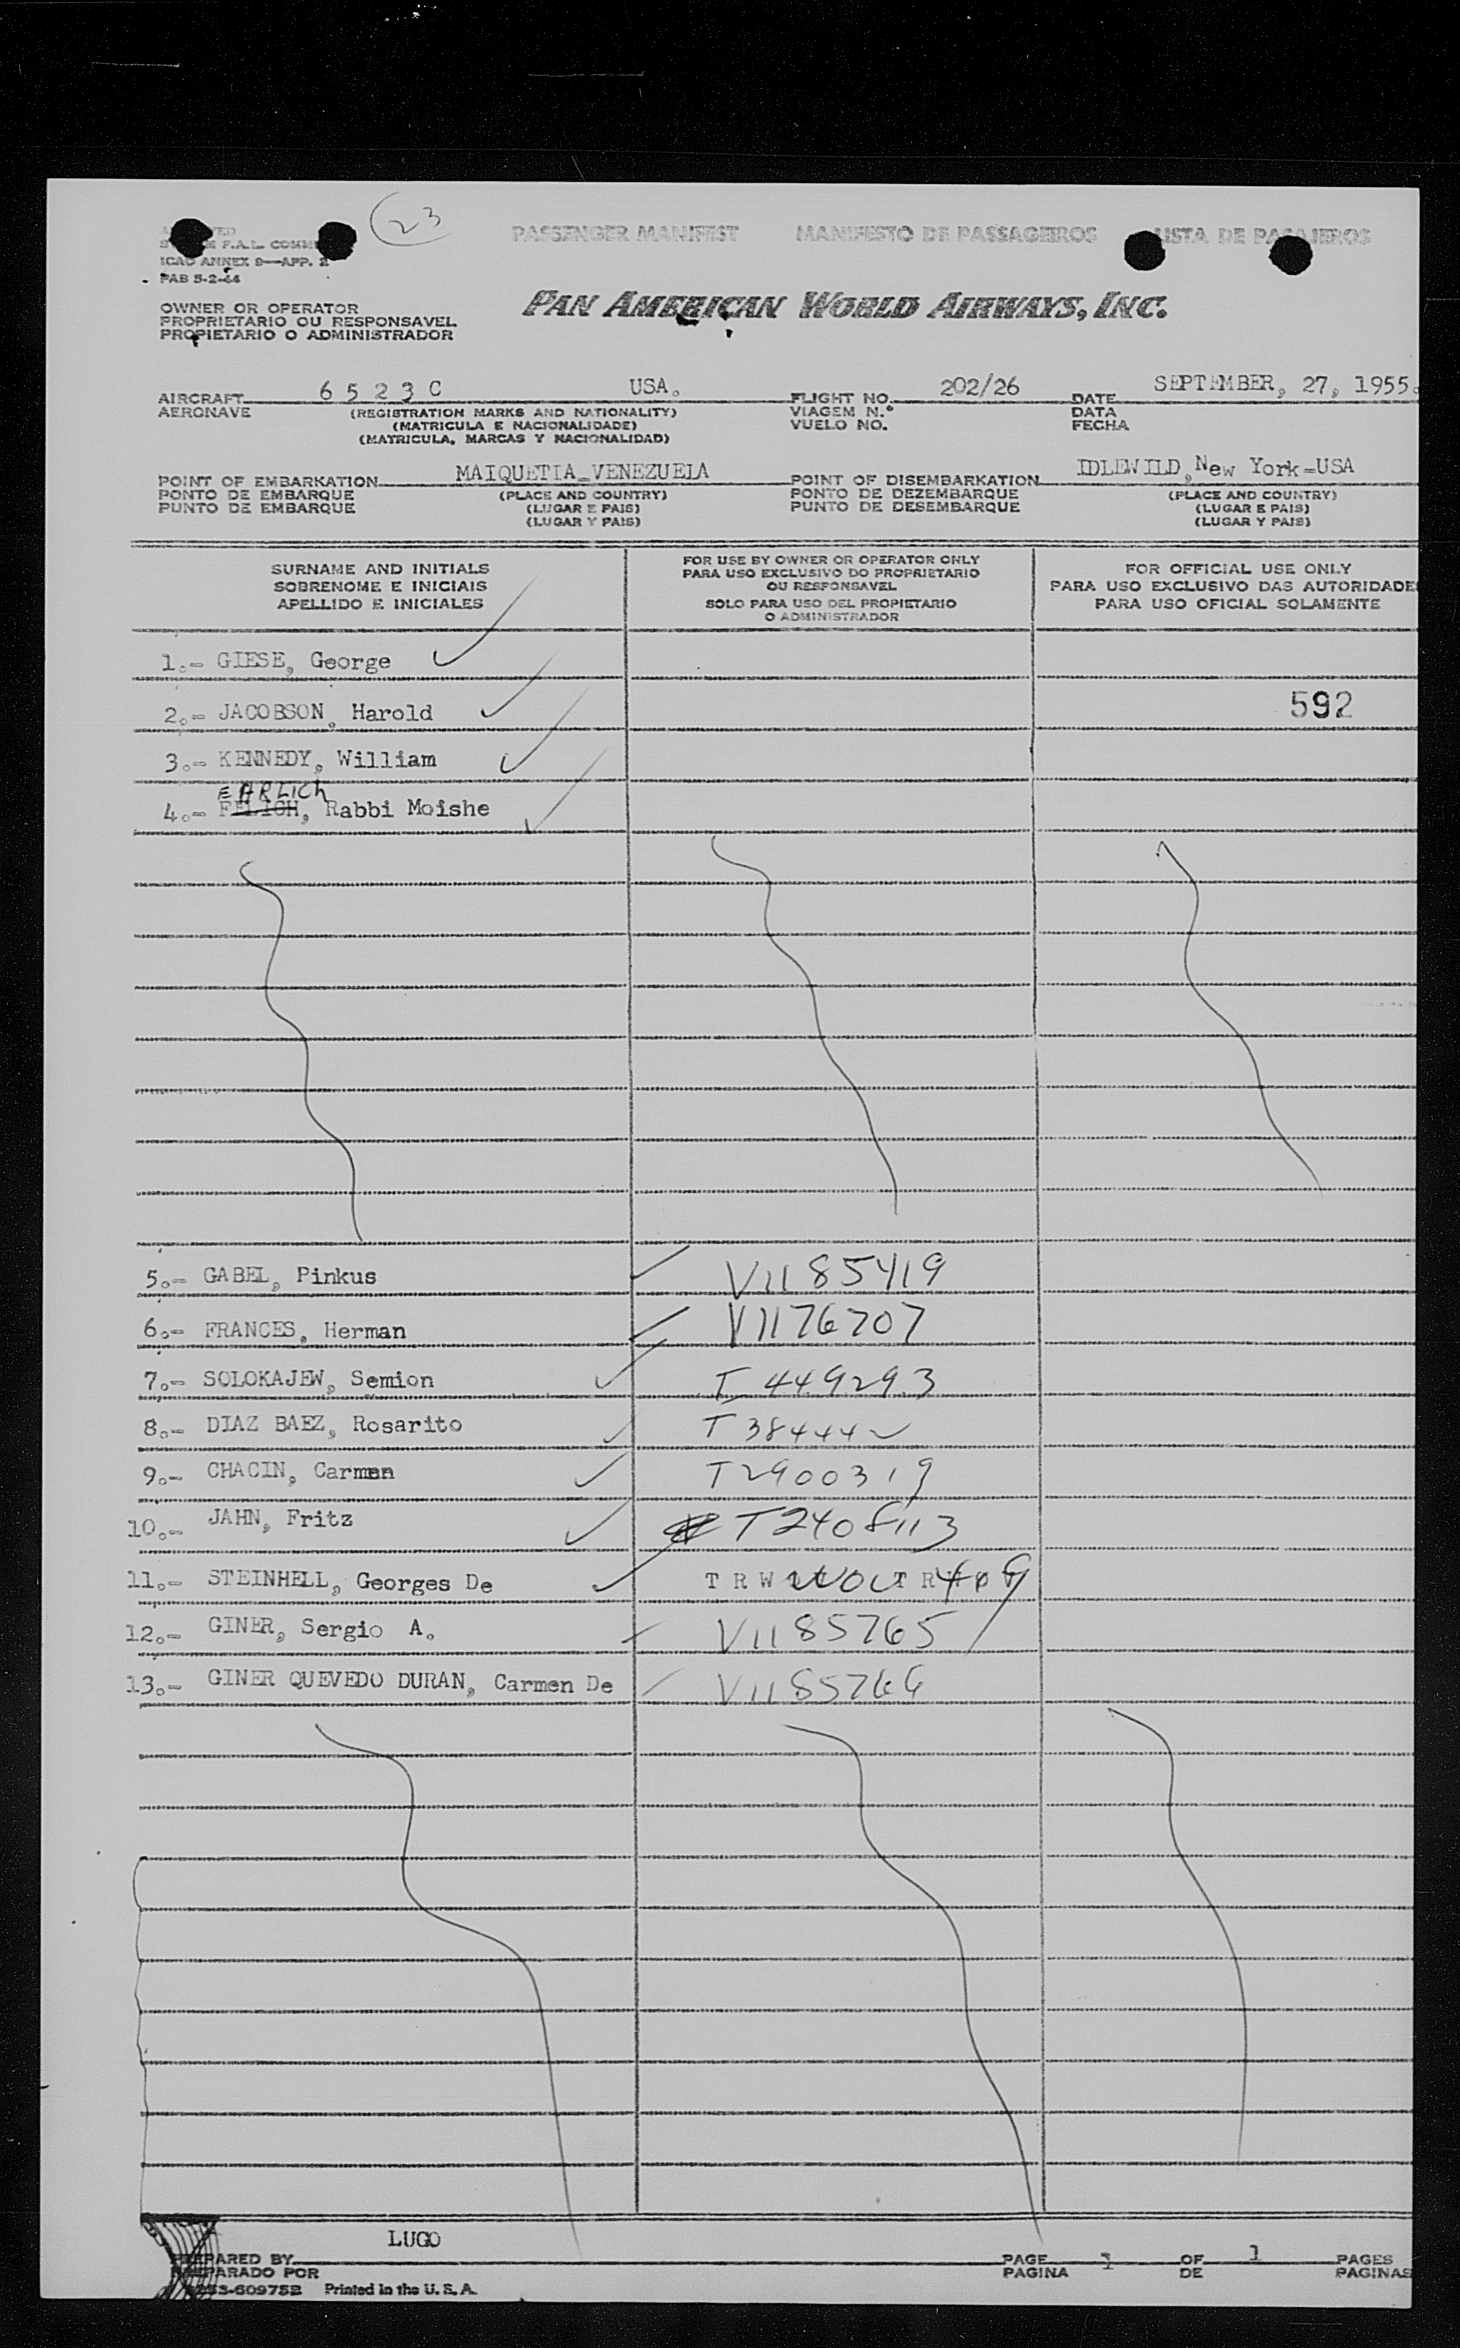 23
PASSENGER MANIFEST MANIFESTO DE PASSAGEIROS LISTA DE PASAJEROS
F.A.L. COMM
ICAO ANNEX 9—APP. 2
PAB 5-2-44
OWNER OR OPERATOR
PROPRIETARIO OU RESPONSAVEL
PROPIETARIO O ADMINISTRADOR
PAN AMERICAN WORLD AIRWAYS, INC.
AIRCRAFT 6 5 2 3 C USA. FLIGHT NO. 202/26 DATE SEPTEMBER, 27, 1955.
AERONAVE (REGISTRATION MARKS AND NATIONALITY) VIAGEM N.° DATA
(MATRICULA E NACIONALIDADE) VUELO NO. FECHA
(MATRICULA, MARCAS Y NACIONALIDAD)
POINT OF EMBARKATION MAIQUETIA-VENEZUELA POINT OF DISEMBARKATION IDLEWILD, New York-USA
PONTO DE EMBARQUE (PLACE AND COUNTRY) PONTO DE DEZEMBARQUE (PLACE AND COUNTRY)
PUNTO DE EMBARQUE (LUGAR E PAIS) PUNTO DE DESEMBARQUE (LUGAR E PAIS)
(LUGAR Y PAIS) (LUGAR Y PAIS)
SURNAME AND INITIALS
SOBRENOME E INICIAIS
APELLIDO E INICIALES
FOR USE BY OWNER OR OPERATOR ONLY
PARA USO EXCLUSIVO DO PROPRIETARIO
OU RESPONSAVEL
SOLO PARA USO DEL PROPIETARIO
O ADMINISTRADOR
FOR OFFICIAL USE ONLY
PARA USO EXCLUSIVO DAS AUTORIDADE
PARA USO OFICIAL SOLAMENTE
1.- GIESE, George
2.- JACOBSON, Harold 592
3.- KENNEDY, William
EHRLICH
4.- , Rabbi Moishe
5.- GABEL, Pinkus V1185419
6.- FRANCES, Herman V1176707
7.- SOLOKAJEW, Semion T 449293
8.- DIAZ BAEZ, Rosarito T 384442
9.- CHACIN, Carmen T2900319
10.- JAHN, Fritz T2408113
11.- STEINHELL, Georges De T R W
12.- GINER, Sergio A. V1185765
13.- GINER QUEVEDO DURAN, Carmen De V1185766
LUGO
PREPARED BY PAGE 1 OF 1 PAGES
PREPARADO POR PAGINA DE PAGINAS
Printed in the U. S. A.